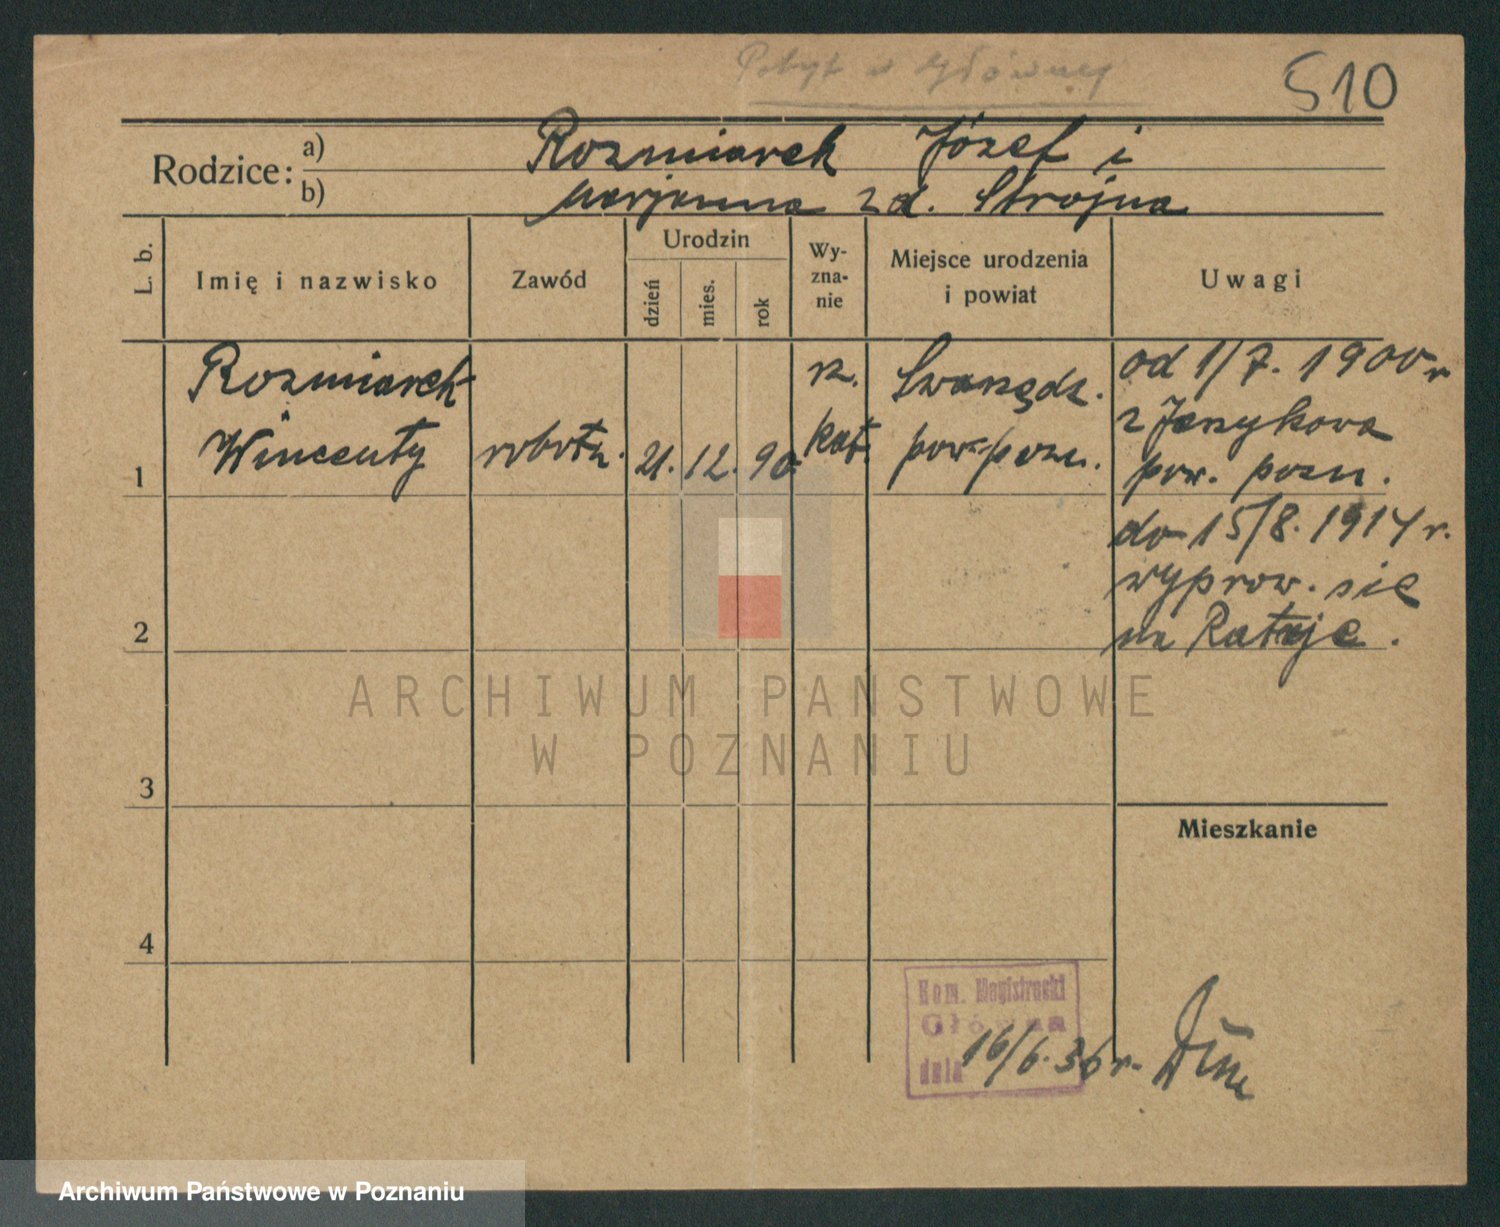 Pobyt w Głównej
510
Rodzice:
a) Rozmiarek Józef i
b) Marjanna z d. Strojna
L. b.
Imię i nazwisko
Zawód
Urodzin
dzień
mies.
rok
Wy-
zna-
nie
Miejsce urodzenia
i powiat
Uwagi
1
Rozmiarek
Wincenty
robotn.
21. 12. 90
rz.
kat.
Swarzędz.
pow. pozn.
od 1/7. 1900 r
z Jerzykowa
pow. pozn.
do 15/8. 1914 r.
wyprow. sie
na Rataje.
2
3
4
Mieszkanie
Kom. Magistracki
Główna
dnia 16/6. 36 r.
ARCHIWUM PAŃSTWOWE
W POZNANIU
Archiwum Państwowe w Poznaniu